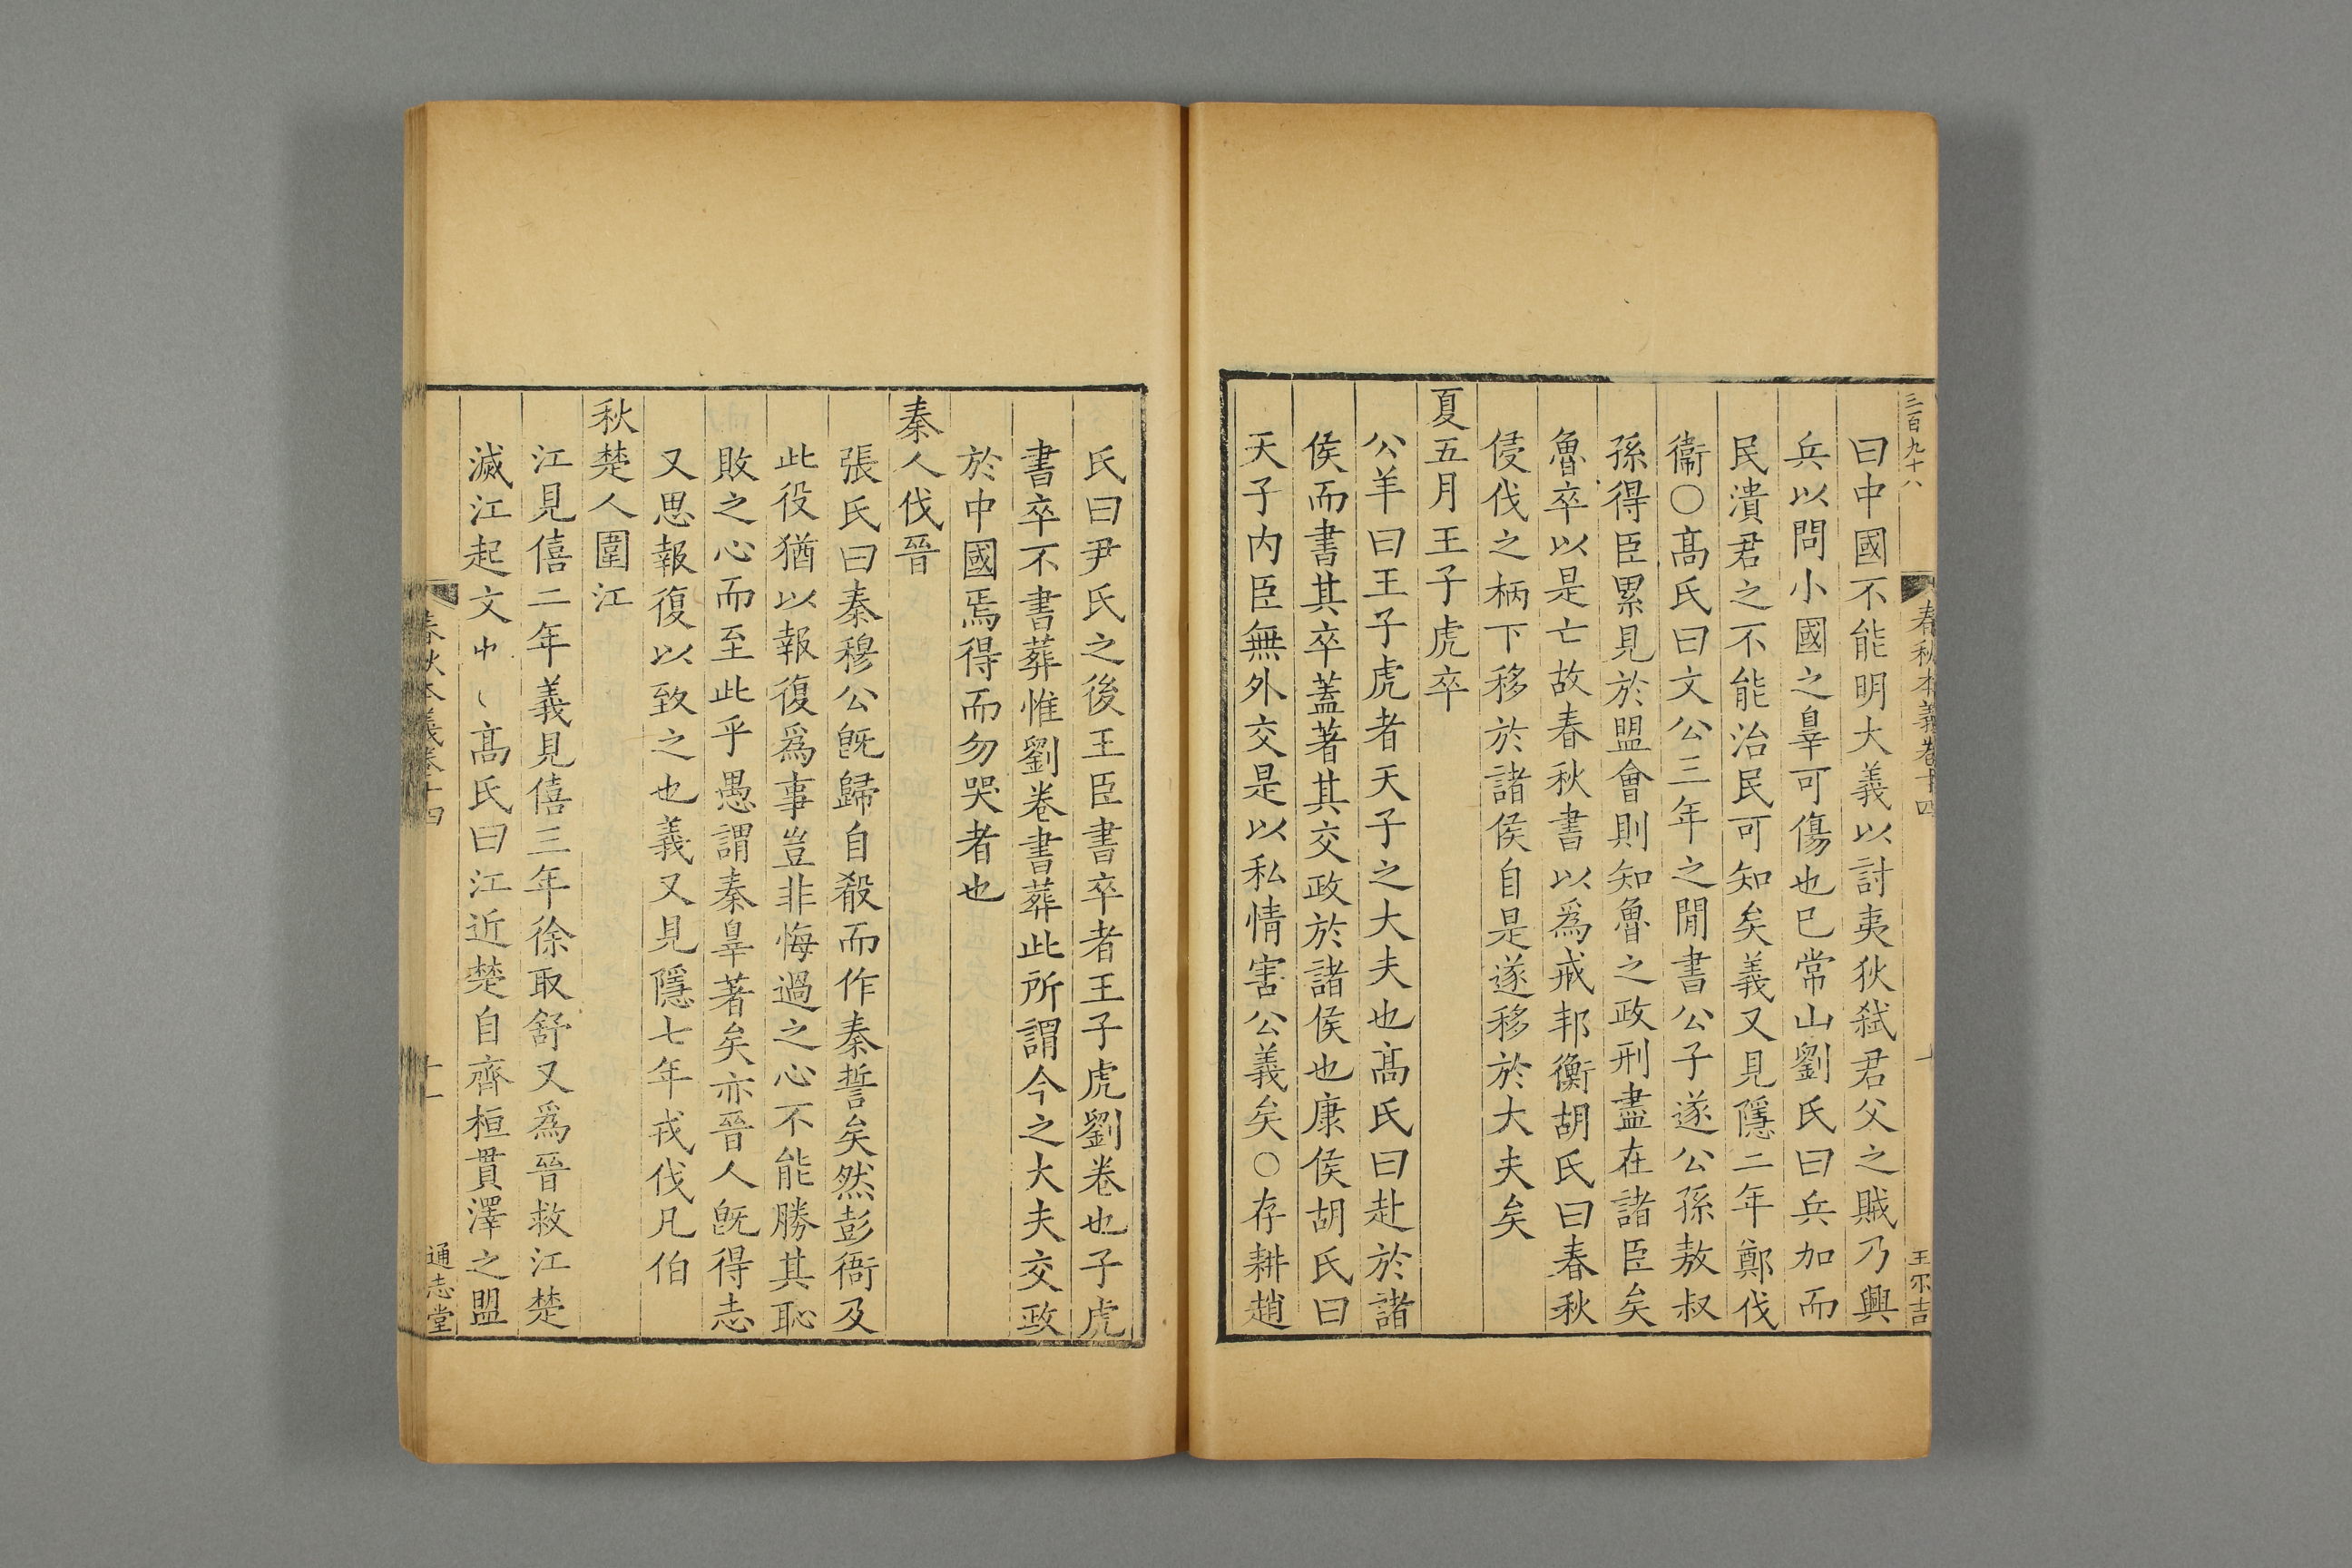 三百九十八
春秋本義卷十四
十
王不吉
曰中國不能明大義以討夷狄弑君父之賊乃興
兵以問小國之辠可傷也已常山劉氏曰兵加而
民潰君之不能治民可知矣義又見隱二年鄭伐
衞○髙氏曰文公三年之閒書公子遂公孫敖叔
孫得臣累見於盟會則知魯之政刑盡在諸臣矣
魯卒以是亡故春秋書以爲戒邦衡胡氏曰春秋
侵伐之柄下移於諸侯自是遂移於大夫矣
夏五月王子虎卒
公羊曰王子虎者天子之大夫也髙氏曰赴於諸
侯而書其卒蓋著其交政於諸侯也康侯胡氏曰
天子内臣無外交是以私情害公義矣○存耕趙
氏曰尹氏之後王臣書卒者王子虎劉卷也子虎
書卒不書葬惟劉卷書葬此所謂今之大夫交政
於中國焉得而勿哭者也
秦人伐晉
張氏曰秦穆公旣歸自殽而作秦誓矣然彭衙及
此役猶以報復爲事豈非悔過之心不能勝其恥
敗之心而至此乎愚謂秦辠著矣亦晉人旣得志
又思報復以致之也義又見隱七年戎伐凡伯
秋楚人圍江
江見僖二年義見僖三年徐取舒又爲晉救江楚
滅江起文髙氏曰江近楚自齊桓貫澤之盟
春秋本義卷十四
十一
通志堂